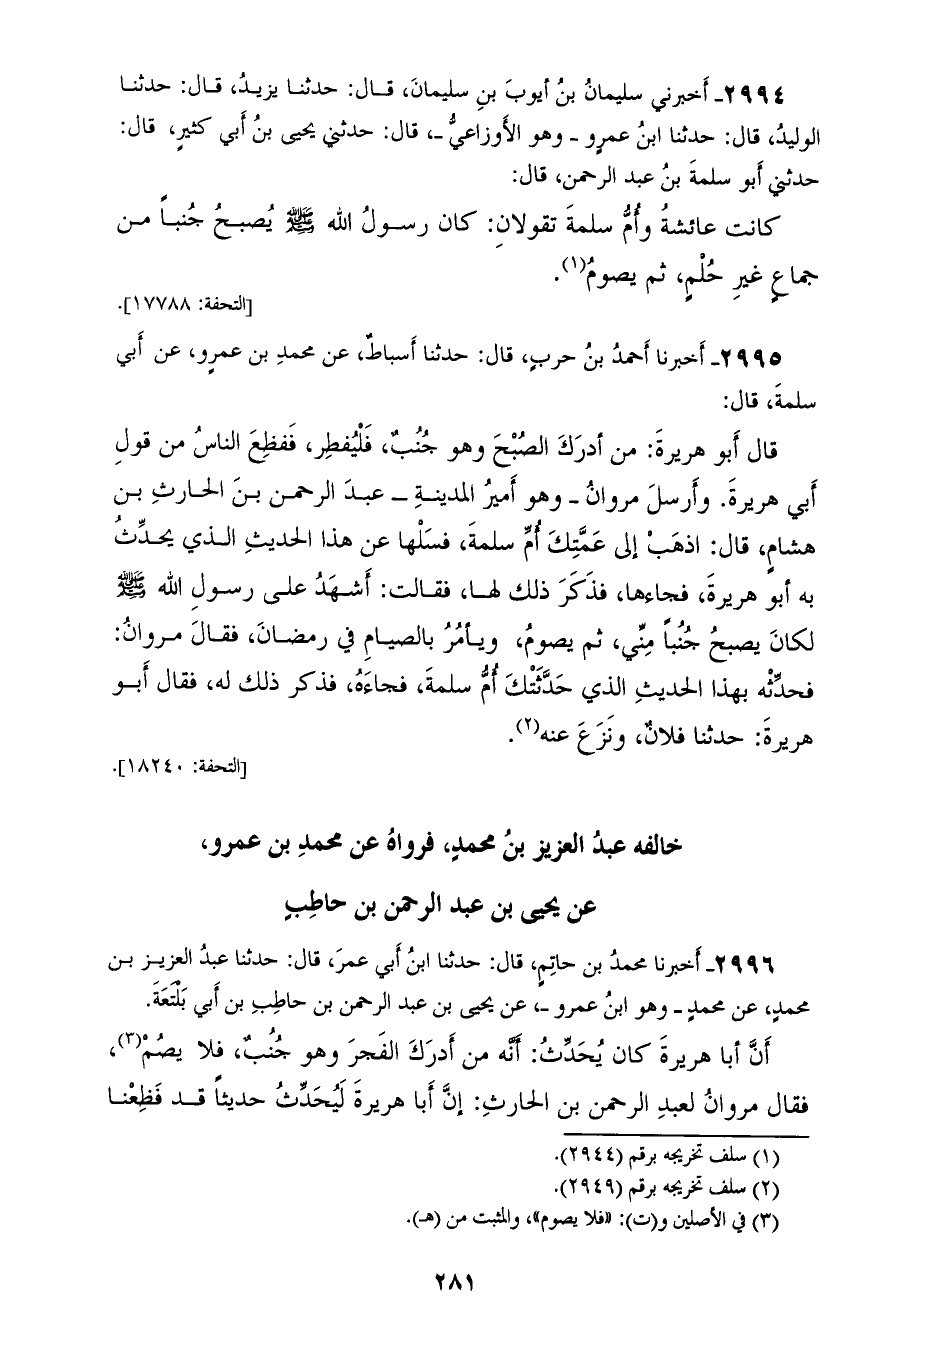 ٢٩٩٤ـ أَخبرني سليمانُ بنُ أيوبَ بنِ سليمانَ، قـال: حدثنـا يزيـدُ، قـال: حدثنـا
الوليدُ، قال: حدثنا ابنُ عمرٍو ـ وهو الأَوزاعيُّ ـ، قال: حدثني يحيى بنُ أَبي كثيرٍ، قال:
حدثني أَبو سلمةَ بنُ عبد الرحمن، قال:
كانت عائشةُ وأُمُّ سلمةَ تقولانِ: كان رسـولُ الله ﷺ يُصبـحُ جُنبـاً مـن
جماعٍ غيرِ حُلْمٍ، ثم يصومُ(١).
[التحفة: ١٧٧٨٨].
٢٩٩٥ـ أَخبرنا أَحمدُ بنُ حربٍ، قال: حدثنا أَسباطٌ، عن محمدِ بن عمرٍو، عن أَبي
سلمةَ، قال:
قال أَبو هريرةَ: من أَدرَكَ الصُبْحَ وهو جُنُبٌ، فَلْيُفطِر، فَفظِعَ الناسُ من قولِ
أَبي هريرةَ. وأَرسلَ مروانُ ـ وهو أَميرُ المدينـةِ ـ عبـدَ الرحمـن بـنَ الحـارثِ بـن
هشامٍ، قال: اذهَبْ إلى عَمَّتِكَ أُمِّ سلمةَ، فسَلْها عن هذا الحديثِ الـذي يحـدِّثُ
به أَبو هريرةَ، فجاءها، فذَكَرَ ذلك لهـا، فقـالت: أَشـهَدُ علـى رسـولِ الله ﷺ
لكانَ يصبحُ جُنُباً مِنِّي، ثم يصومُ، ويـأمُرُ بالصيـامِ في رمضـانَ، فقـالَ مـروانُ:
فحدِّثْه بهذا الحديثِ الذي حَدَّثَتْكَ أُمُّ سلمةَ، فجاءَهُ، فذكر ذلك له، فقال أَبـو
هريرةَ: حدثنا فلانٌ، ونَزَعَ عنه(٢).
[التحفة: ١٨٢٤٠].
خالفه عبدُ العزيز بنُ محمدٍ، فرواهُ عن محمدِ بن عمرو،
عن يحيى بن عبد الرحمن بن حاطِبٍ
٢٩٩٦ـ أَخبرنا محمدُ بن حاتِمٍ، قال: حدثنا ابنُ أَبي عمرَ، قال: حدثنا عبدُ العزيـز بـن
محمدٍ، عن محمدٍ ـ وهو ابنُ عمرو ـ، عن يحيى بن عبد الرحمن بن حاطِبِ بن أَبي بَلْتَعَةَ.
أَنَّ أَبا هريرةَ كان يُحَدِّثُ: أَنَّه من أَدرَكَ الفَجرَ وهو جُنُبٌ، فلا يصُمْ(٣)،
فقال مروانُ لعبدِ الرحمن بن الحارثِ: إنَّ أَبا هريرةَ لَيُحَدِّثُ حديثاً قـد فَظِعْنـا
(١) سلف تخريجه برقم (٢٩٤٤).
(٢) سلف تخريجه برقم (٢٩٤٩).
(٣) في الأصلين و(ت): «فلا يصوم»، والمثبت من (هـ).
٢٨١